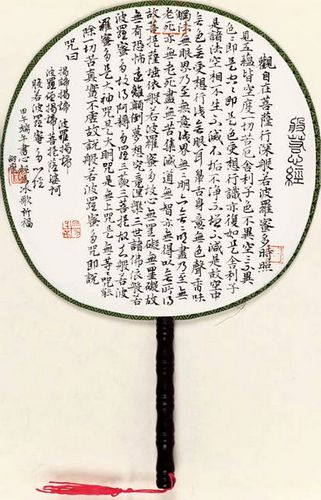 般若心經
觀自在菩薩行深般若波羅蜜多時照
見五蘊皆空度一切苦厄舍利子色不異空空不異
色色即是空空即是色受想行識亦復如是舍利子
是諸法空相不生不滅不垢不淨不增不減是故空中
無色無受想行識無眼耳鼻舌身意無色聲香味
觸法無眼界乃至無意識界無無明亦無無明盡乃至無
老死亦無老死盡無苦集滅道無智亦無得以無所得
故菩提薩埵依般若波羅蜜多故心無罣礙無罣礙故
無有恐怖遠離顛倒夢想究竟涅槃三世諸佛依般若
波羅蜜多故得阿耨多羅三藐三菩提故知般若波
羅蜜多是大神咒是大明咒是無上咒是無等等咒能
除一切苦真實不虛故說般若波羅蜜多咒即說
咒曰
揭諦揭諦 波羅揭諦
波羅僧揭諦菩提薩婆訶
般若波羅蜜多心經
甲午端午書心經冰歌祈福